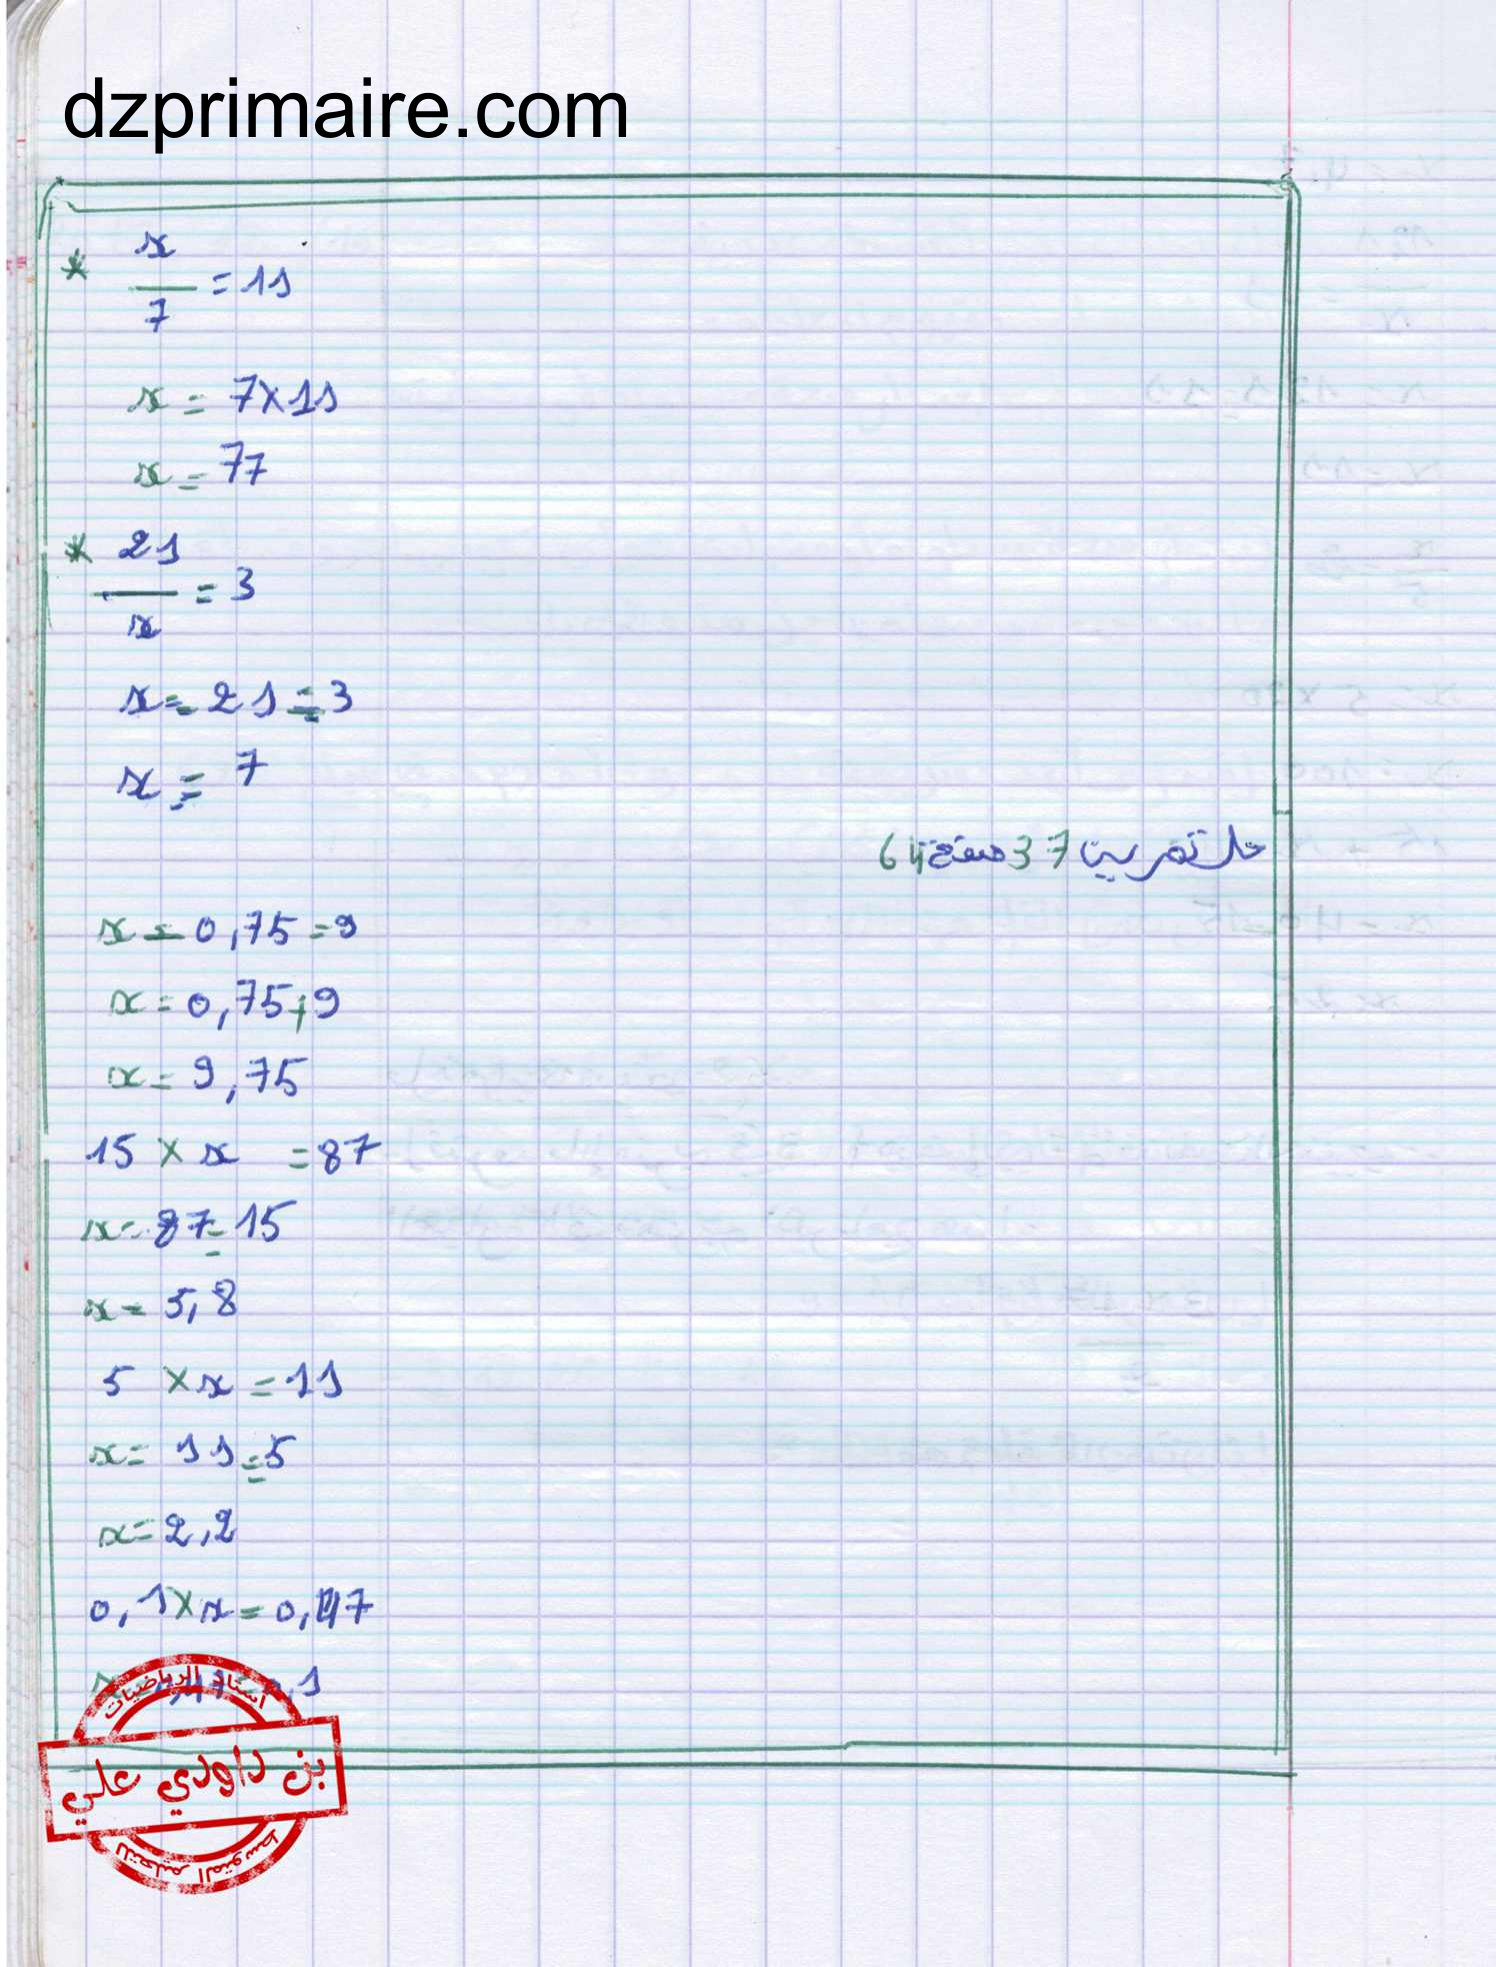 dzprimaire.com
* x/7 = 11
x = 7×11
x = 77
* 21/x = 3
x = 21 ÷ 3
x = 7
حل تمرين 37 صفحة 64
x − 0,75 = 9
x = 0,75 + 9
x = 9,75
15 × x = 87
x = 87 ÷ 15
x = 5,8
5 × x = 11
x = 11 ÷ 5
x = 2,2
0,1 × x = 0,47
استاذ الرياضيات
بن داودي علي
للتعليم المتوسط